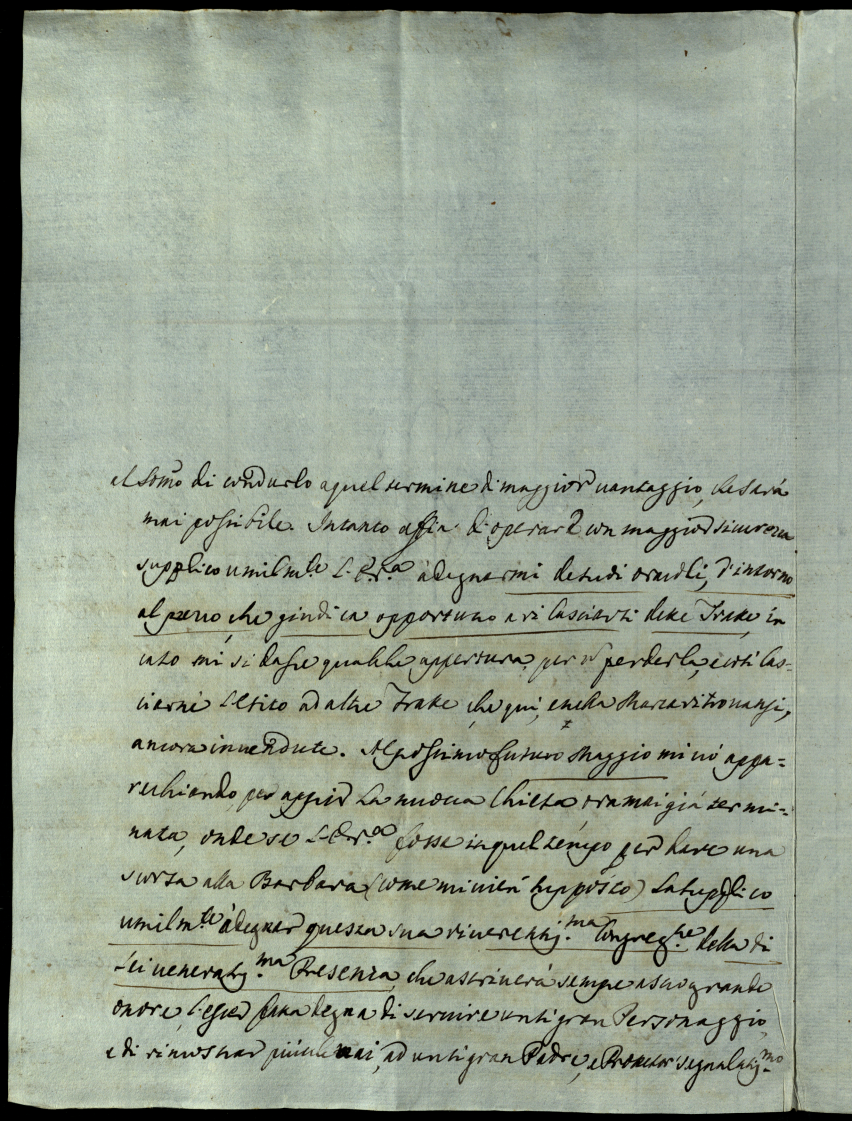 al sommo di condurlo a quel termine di maggior vantaggio, che sarà
mai possibile. Intanto affin di operar con maggior sicurezza
supplico umilmte L. E. Va à degnarmi de suoi oracoli, d'intorno
al prezzo, che giudica opportuno a rilasciarsi dette Tratte, in
caso mi si dasse qualche appertura, per nõ perderla, e così las-
ciarne l'esito ad altre Tratte, che qui, e nella Marca ritrovansi,
ancora invendute. Al prossimo futuro Maggio mi vò appa-
recchiando per aprir la nuova Chiesa oramai già termi-
nata, onde se L. E. Va fosse in quel tempo per dare una
scorsa alla Barbara (come mi vien supposto) la supplico
umilmte à degnar questa sua riverentissma Congregne della di
Lei veneratissma Presenza, che ascriverà sempre a suo grande
onore, l'esser fatta degna di servire un si gran Personaggio,
e di rimostrar più che mai, ad un si gran Padre, e Protettor segnalatissmo